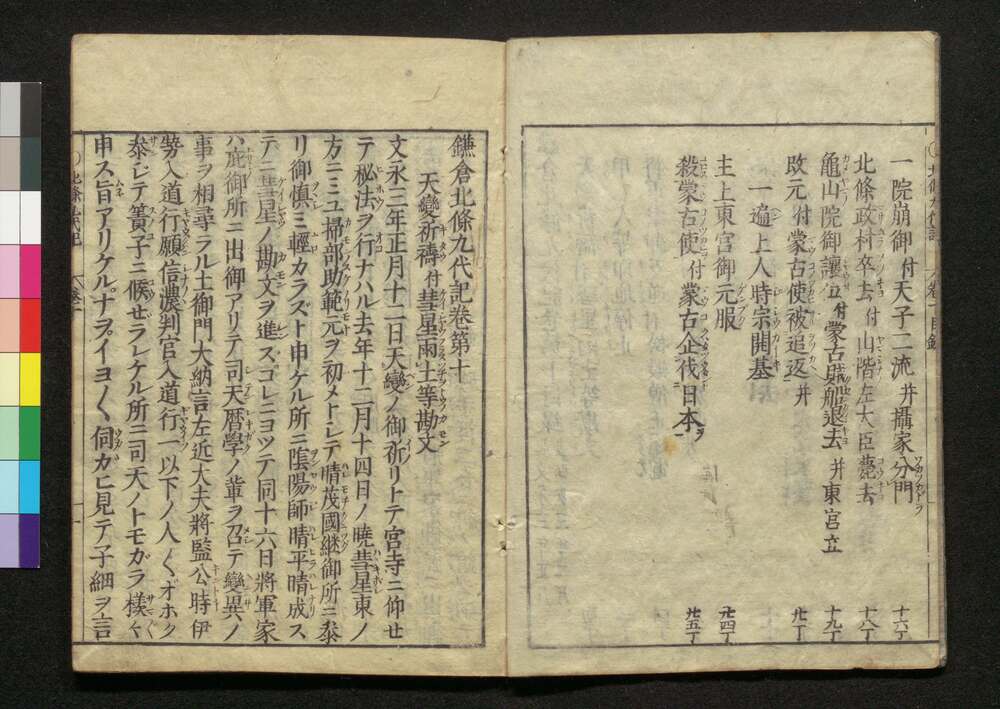 一院崩御 付 天子二流 并 攝家分門 十六丁
北條政村卒去 付 山階左大臣薨去 十八丁
龜山院御讓位 付 蒙古賊船退去 并 東宮立 十九丁
改元 付 蒙古使被追返 并 一遍上人時宗開基 廿一丁
主上東宮御元服 廿四丁
殺蒙古使 付 蒙古企伐日本 廿五丁
鎌倉北條九代記卷第十
天變祈禱 付 彗星雨土等勘文
文永三年正月十二日天變ノ御祈リトテ宮寺ニ仰せ
テ秘法ヲ行ナハル去年十二月十四日ノ曉彗星東ノ
方ニミユ掃部助範元ヲ初メトシテ晴茂國継御所ニ參
リ御愼ミ輕カラズト申ケル所ニ陰陽師晴平晴成ス
デニ彗星ノ勘文ヲ進ズコレニヨツテ同十六日將軍家
ハ庇御所ニ出御アリテ司天暦學ノ輩ヲ召テ變異ノ
事ヲ相尋ラル土御門大納言左近大夫將監公時伊
勢入道行願信濃判官入道行一以下ノ人〳〵オホク
參シテ簀子ニ候せラレケル所ニ司天ノトモガラ樣々
申ス旨アリケルナヲイヨ〳〵伺ガヒ見テ子細ヲ言